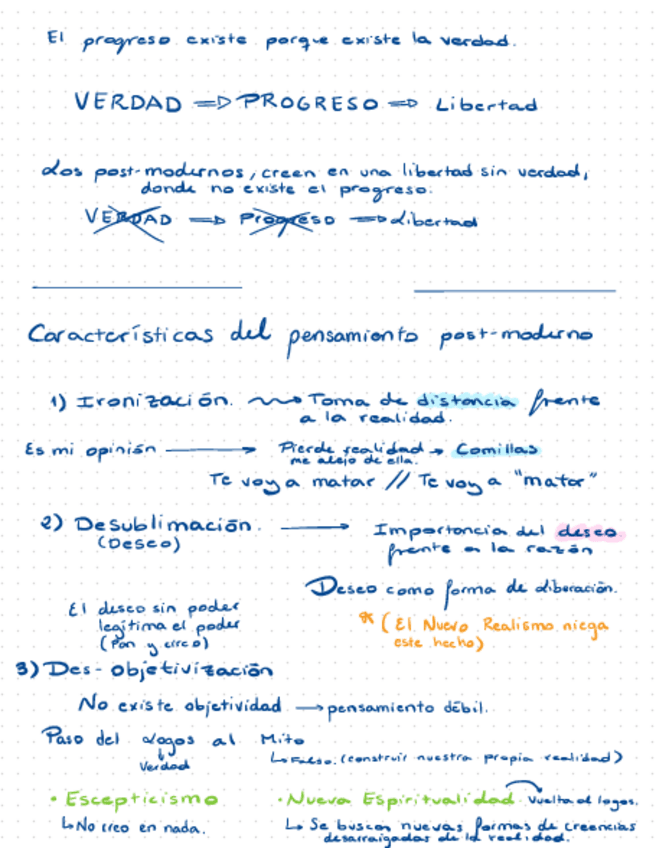 El progreso existe porque existe la verdad.
VERDAD => PROGRESO => Libertad
Los post-modernos, creen en una libertad sin verdad,
donde no existe el progreso.
VERDAD => Progreso => Libertad
Características del pensamiento post-moderno
1) Ironización. → Toma de distancia frente
a la realidad.
Es mi opinión → Pierde realidad → Comillas
me alejo de ella.
Te voy a matar // Te voy a "matar"
2) Desublimación. → Importancia del deseo
(Deseo) frente a la razón
Deseo como forma de liberación.
El deseo sin poder
legítima el poder
(Pan y circo)
* (El Nuevo Realismo niega
este hecho)
3) Des-objetivización
No existe objetividad → pensamiento débil.
Paso del Logos al Mito
Verdad
↳ Falso. (construir nuestra propia realidad)
• Escepticismo
↳ No creo en nada.
• Nueva Espiritualidad Vuelta al logos.
↳ Se buscan nuevas formas de creencias
desarraigadas de la realidad.